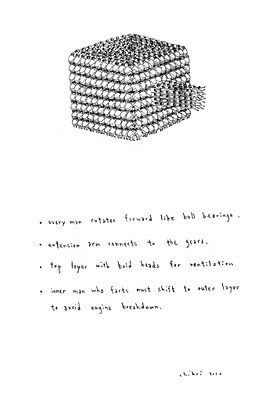 • every man rotates forward like ball bearings.
• extension arm connects to the gears.
• top layer with bald heads for ventilation.
• inner man who farts must shift to outer layer
to avoid engine breakdown.